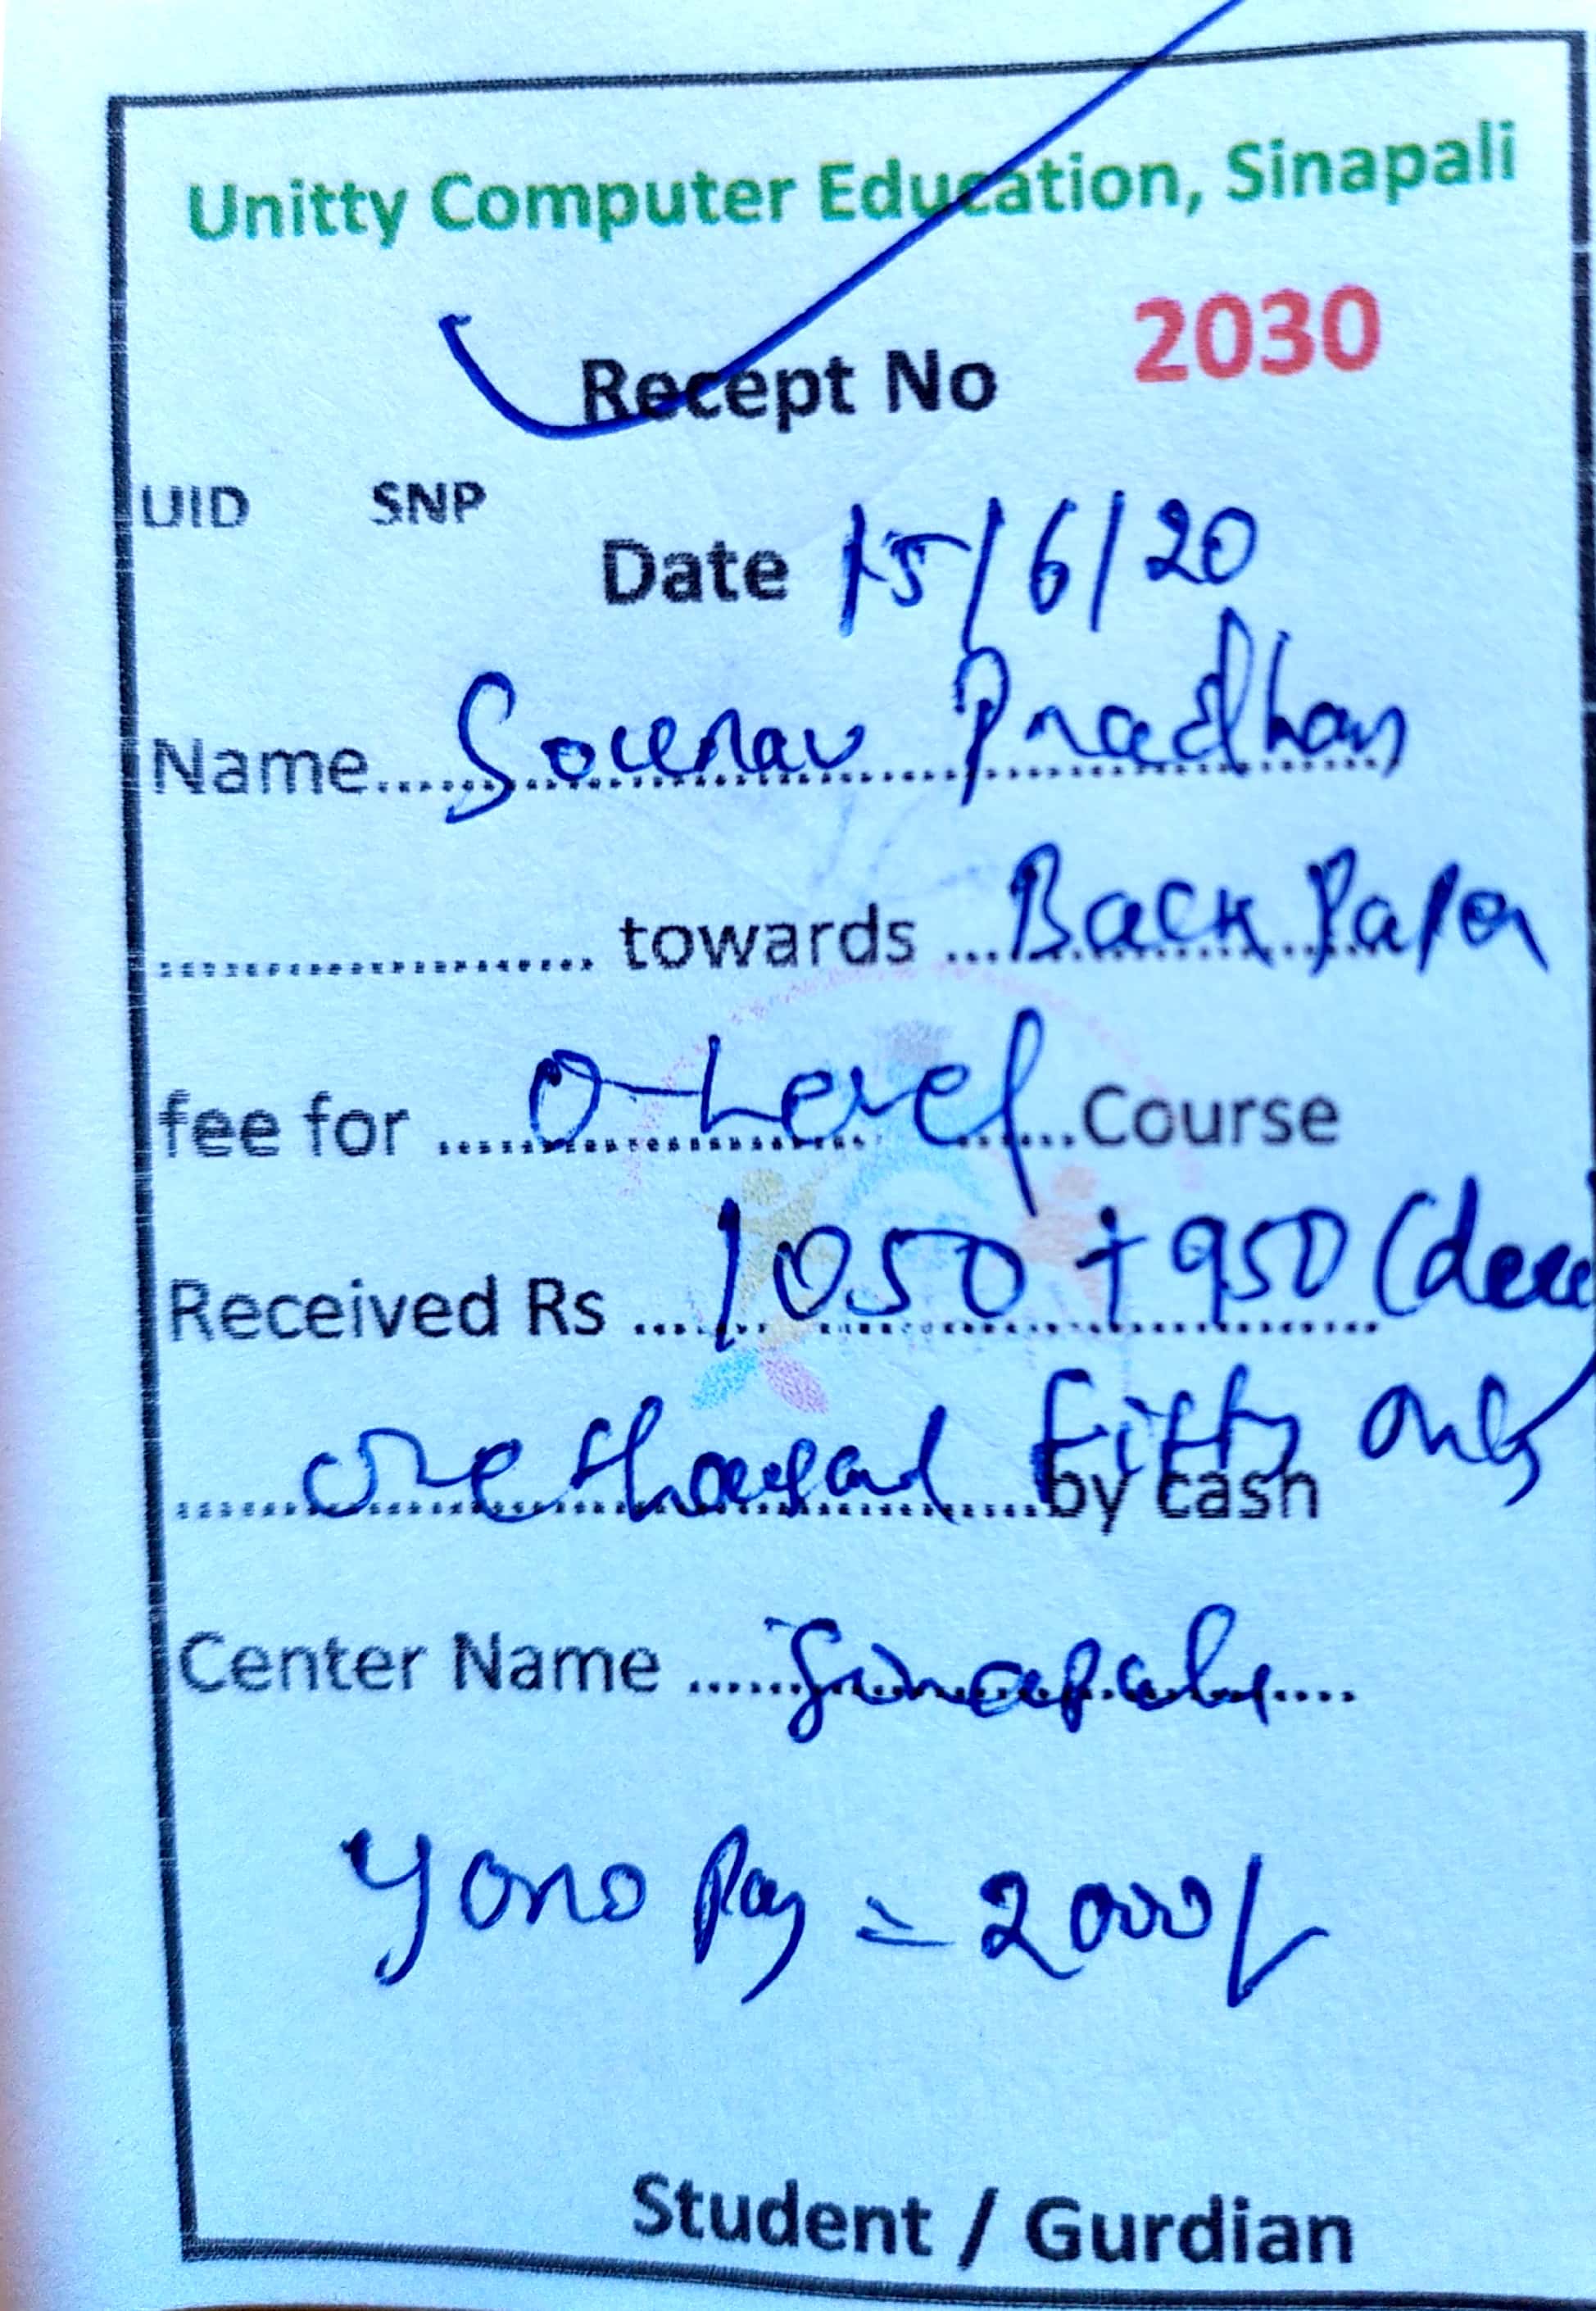 Unitty Computer Education, Sinapali
Recept No 2030
UID SNP
Date 15/6/20
Name.... Sourav Pradhan
.................... towards ... Back Paper
fee for .... O-Level ....Course
Received Rs .... 1050 + 950 (due)
one thousand Fifty only by cash
Center Name ...... Sinapali ....
Yono Pay = 2000/-
Student / Gurdian